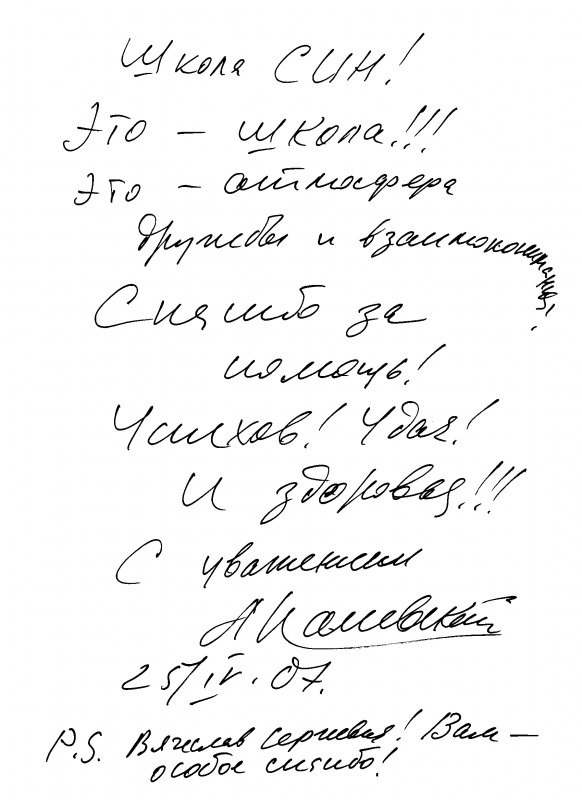 Школа СИН!
Это – школа!!!
Это – атмосфера
дружбы и взаимопонимания!
Спасибо за
помощь!
Успехов! Удач!
И здоровья!!!
С уважением
25/IV.07.
P.S. Вячеслав Сергеевич! Вам –
особое спасибо!